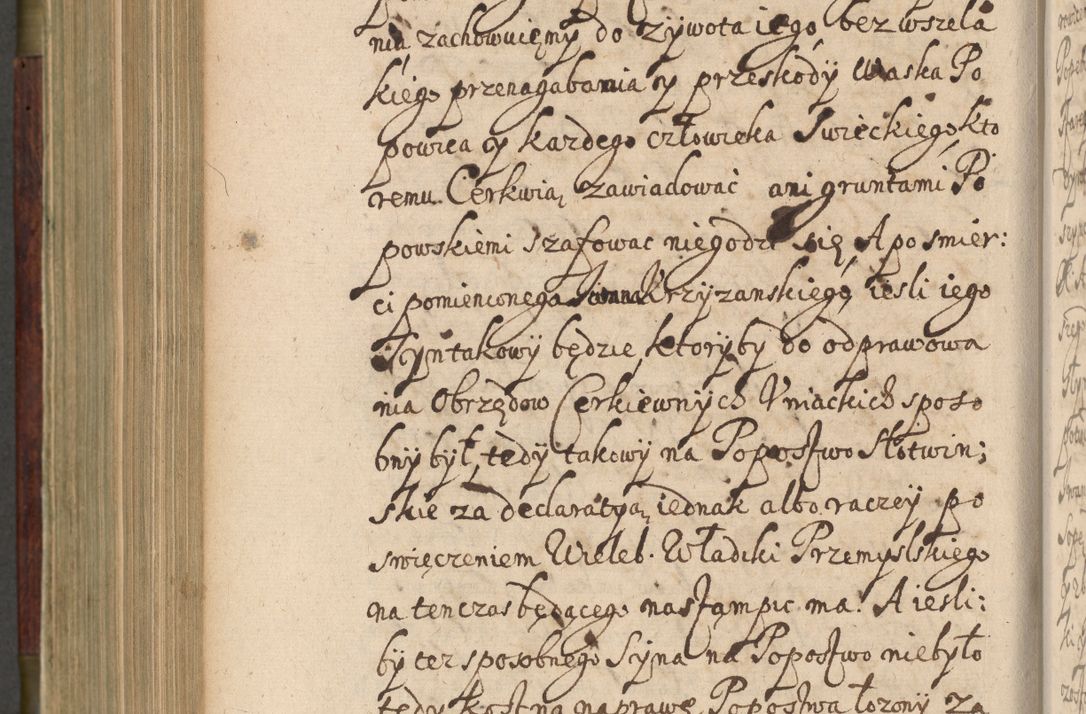 nia zachowuięmy do zywota iego bez wszela
kięgo przenagabania y przeskody Waska Po
powica y kazdego człowieka Swieckiego kto
remu Cerkwią zawiadować ani gruntami Po
powskiemi szafowac niegodzi się A po smier:
ci pomienconego Krzyzanskiego, iesli iego
Syn takowy będzie, ktoryby do odprawowa
nia Obrzędow Cerkiewnych Vniackich sposo
bny był, tedy takowy na Popostwo Słotwin;
skie za declaratyą iednak albo raczey po
swięczeniem Wieleb. Władiki Przemyslskiego
na ten czas będącego nastąmpic ma. A iesli:
by tez sposobnego Syna na Popostwo niebyło
tedy koszt na naprawę Popostwa łozony za